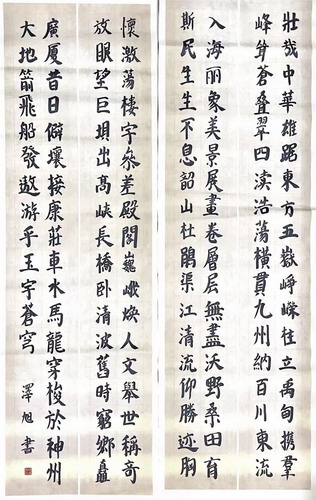 壯哉中華雄踞東方五嶽崢嶸柱立禹甸携羣
峰耸蒼叠翠四瀆浩蕩橫貫九州納百川東流
入海丽象美景展畫卷層层無盡沃野桑田育
斯民生生不息韶山杜鹃渠江清流仰勝迹胸
懷激蕩樓宇叅差殿閣巍峨焕人文舉世稱奇
放眼望巨垻出高峽長橋卧清波舊時窮鄉矗
廣厦昔日僻壤接康莊車水馬龍穿梭於神州
大地箭飛船發遨游乎玉宇蒼穹
澤旭書